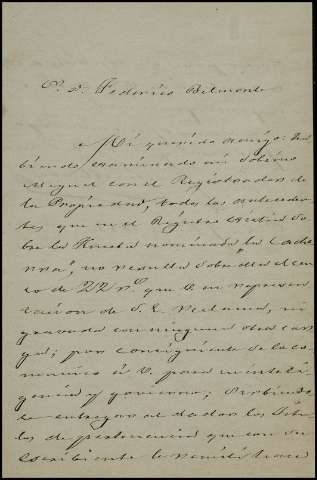 Sr. Dn. Federico Belmonte
Mi querido amigo: Ha
biendo examinado mi sobrino
Miguel con el Registrador de
la Propiedad, todos los anteceden
tes que en el Registro existen so
bre la Huerta nominada la Cade
nosa, no resulta sobre ella el cen
so de 22 rs. que en represen
tacion de S. E. reclama, ni
gravada con ninguna otra car
ga; por consiguiente se lo co
munico á V. para su inteli
gencia y gobierno;
le entregara al dador los Titu
los de pertenencia que con su
escribiente le remiti para